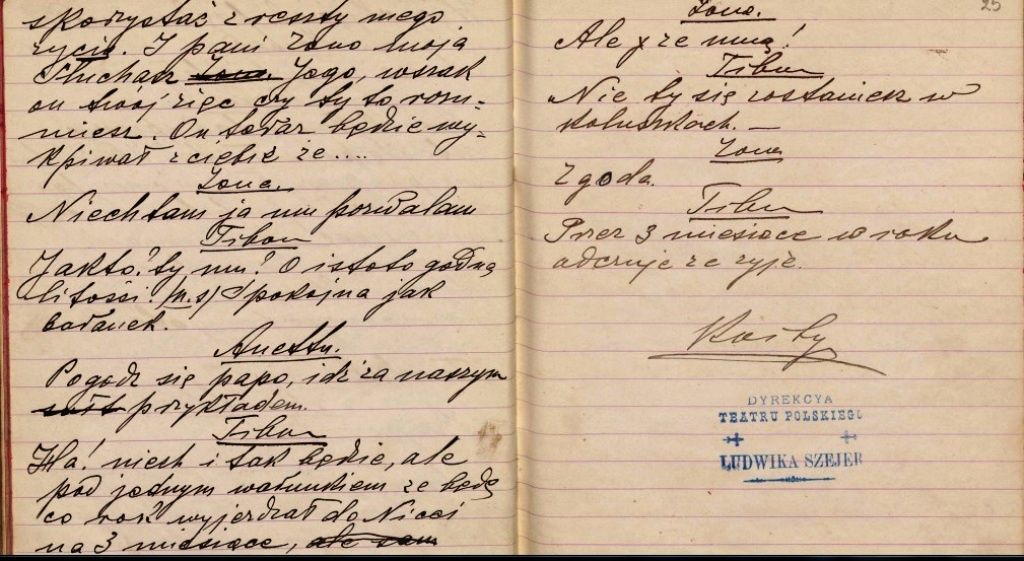 skorzystać z reszty mego
życia. I pani żono moja
słuchasz Jego, wszak
on twój zięć czy ty to rozu=
miesz. On teraz będzie wy=
kpiwał z ciebie że....
Żona.
Niech tam ja mu pozwalam
Tibon
Jakto? ty mu? O istoto godna
litości! (n.s) Spokojna jak
baranek.
Anetta.
Pogódź się papo, idź za naszym
przykładem.
Tibon
Ha! niech i tak będzie, ale
pod jednym warunkiem że będę
co rok wyjeżdżał do Nicei
na 3 miesiące,
25
Żona.
Ale ze mną!
Tibon
Nie ty się zostaniesz w
Żona
Zgoda.
Tibon
Przez 3 miesiące w roku
odczuję że żyję.
DYREKCYA
TEATRU POLSKIEGO
LUDWIKA SZEJER